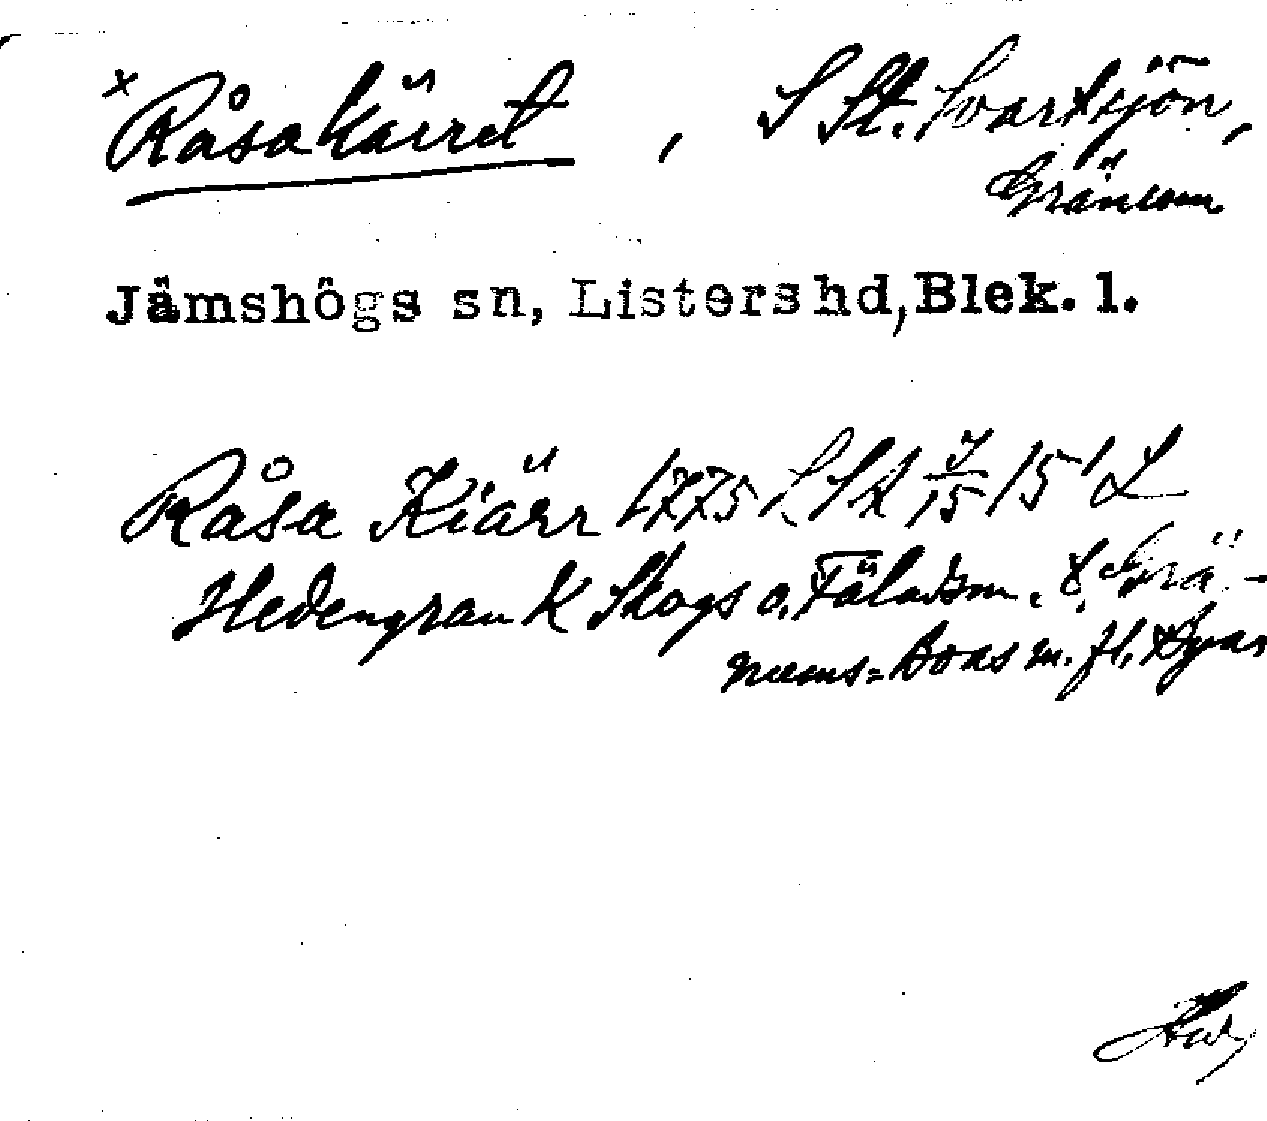 x Råsakärret, S St. Svartsjön,
Gränsum
Jämshögs sn, Listers hd, Blek. l.
Råsa Kiärr 1775 LSA 15 L
Hedengran K Skogs o. Fäladsm. t. Grä-
nums-Boas m. fl. Byar